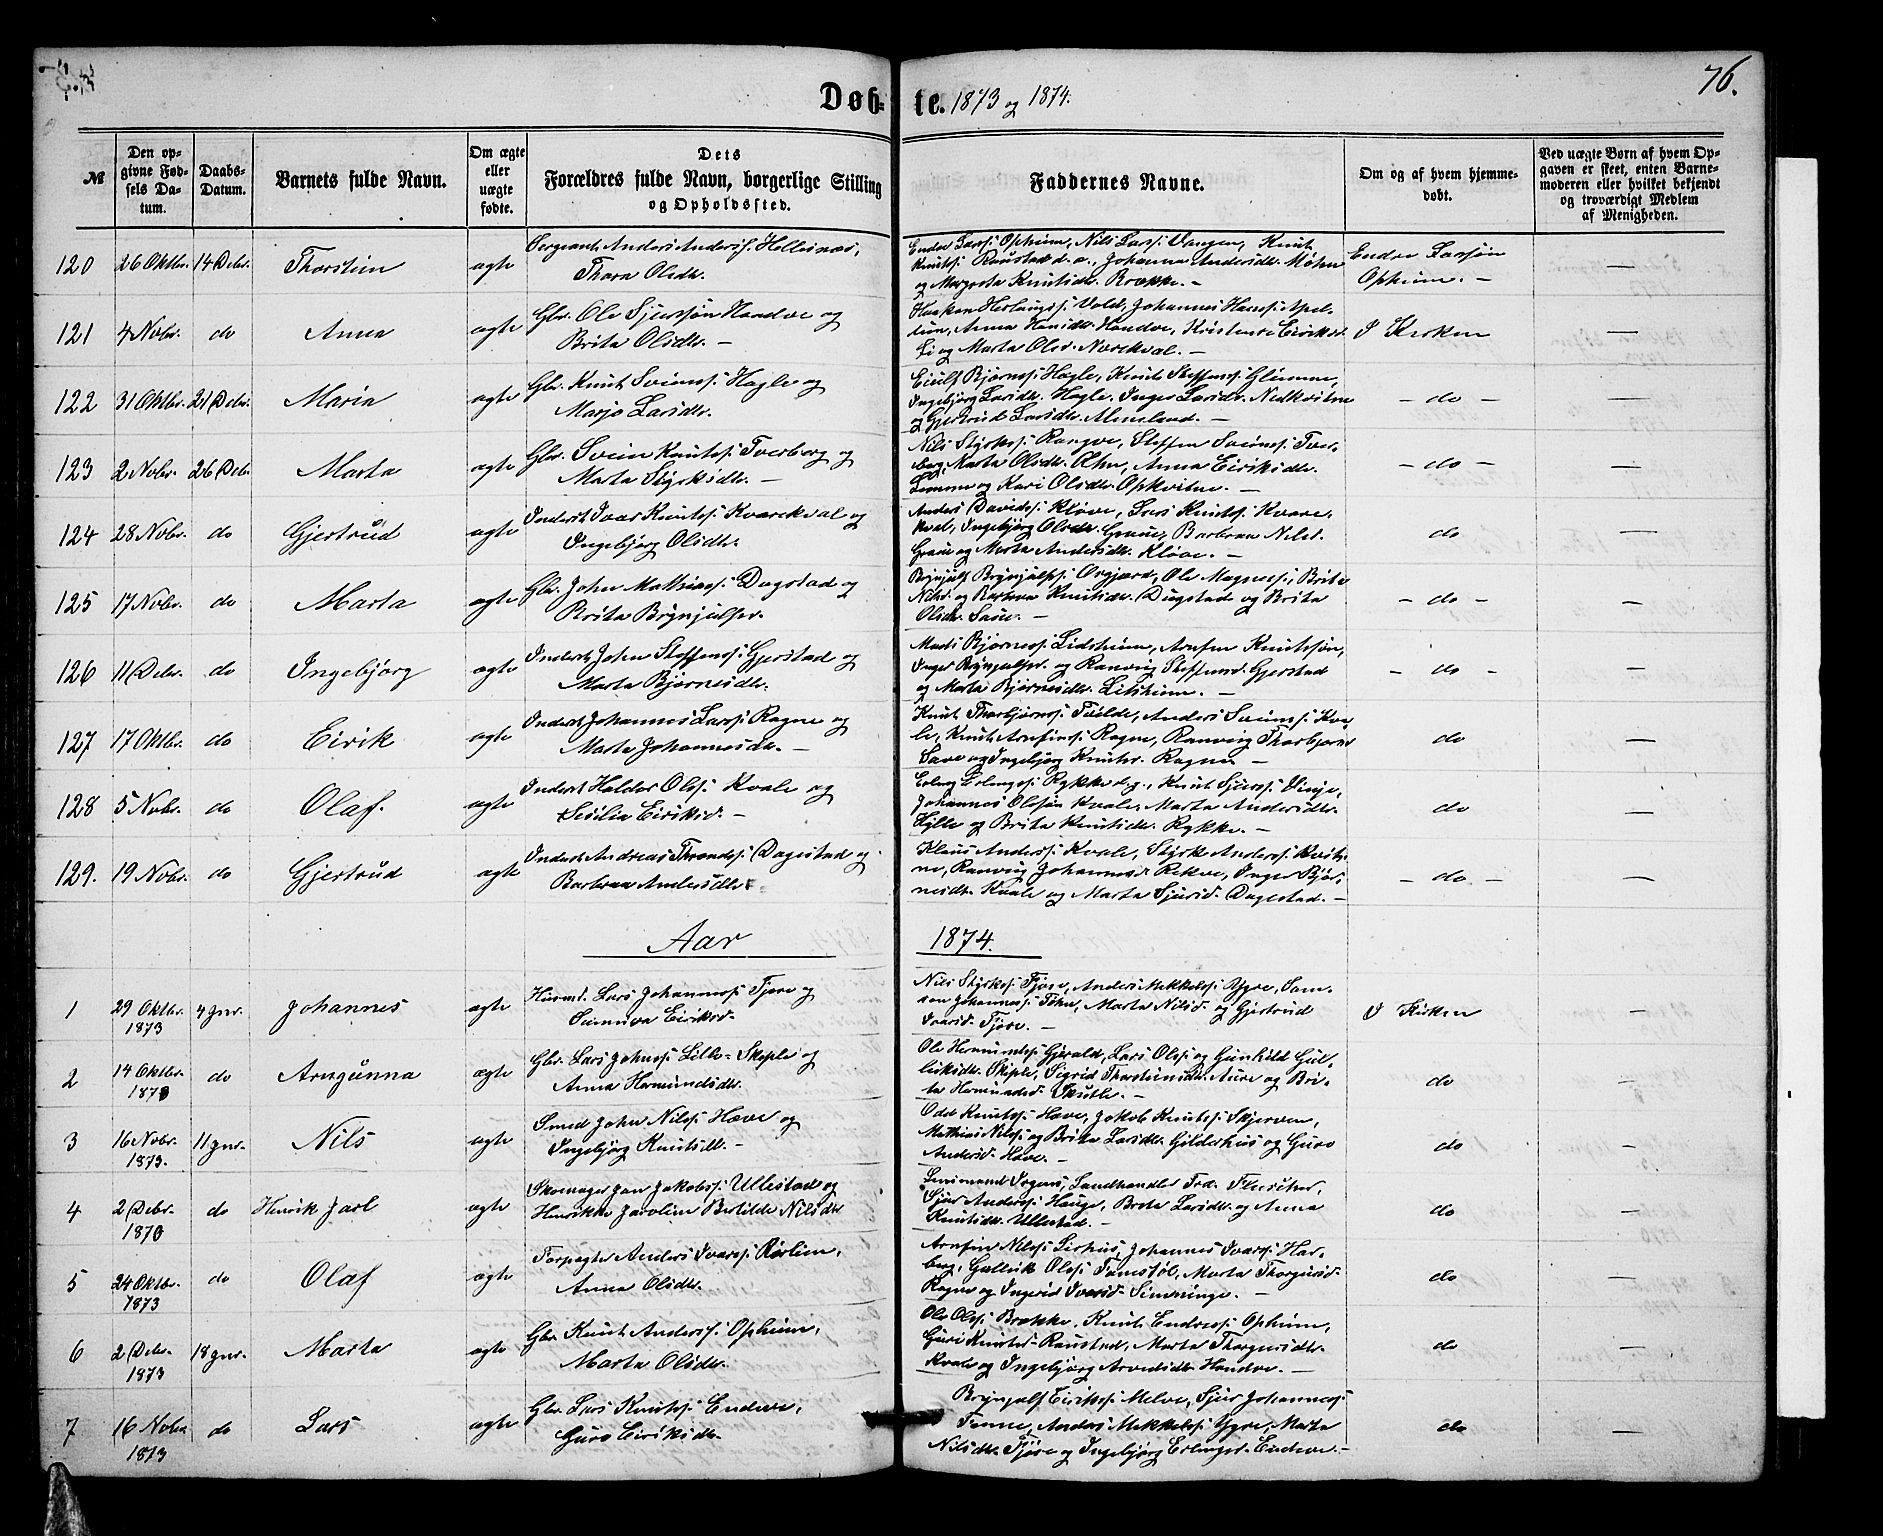 76.
Døbte. 1873 og 1874.
№
Den opgivne Fødsels Datum.
Daabs-Datum.
Barnets fulde Navn.
Om ægte eller uægte fødte.
Dets Forældres fulde Navn, borgerlige Stilling og Opholdssted.
Faddernes Navne.
Om og af hvem hjemmedøbt.
Ved uægte Børn af hvem Opgaven er skeet, enten Barnemoderen eller hvilket bekjendt og troværdigt Medlem af Menigheden.
120 26 Oktbr. 14 Debr. Thorstein ægte Sergeant Anders Anderss: Hellesnæs,
Thora Olsdtr.
Endre Larss: Opheim, Nils Larss: Vangen, Knut
Knutss: Raustad d. æ., Johanna Andersdtr. Møhn
og Margreta Knutsdtr. Brække. –
Endre Larssøn
Opheim. –
—
121 4 Nobr. do Anna ægte Gbr. Ole Sjurssøn Handve og
Brita Olsdtr. –
Haakon Herlaugss: Vold, Johannes Hanss: Apeltun, Anna Hansdtr. Handve, Kristense Eiriksdr.
Li og Marta Olsd. Nærekval. –
I Kirken
—
122 31 Oktbr. 21 Debr. Maria ægte Gbr. Knut Sveinss: Hagle og
Marjo Larsdtr.
Eiulf Bjørnss: Hagle, Knut Steffenss: Glimme,
Ingebjørg Larsdtr. Hagle, Inger Larsdtr. Nedkvitne
og Gjertrud Larsdtr. Almeland. –
– do –
—
123 2 Nobr. 26 Debr. Marta ægte Gbr. Svein Knutss: Tverberg og
Marta Styrksdtr. –
Nils Styrkss: Rangve, Steffen Sveinss: Tverberg, Marta Olsdtr. Øhn, Anna Eiriksdtr.
Lemme og Kari Olsdtr. Opkvitne. –
– do –
—
124 28 Nobr. do Gjertrud ægte Inderst Ivar Knutss: Kvarekval og
Ingebjørg Olsdtr.
Anders Davidss: Kløve, Lars Knutss: Kvarekval, Ingebjørg Olsdtr. Graue, Barbraa Nilsd.
Graue og Marta Andersdtr. Kløve. –
do
—
125 17 Nobr. do Marta ægte Gbr. John Mathiass: Dagstad og
Brita Brynjulfsr.
Brynjulf Brynjulfss: Orgjærd, Ole Magness:, Brita
Nilsd. og Barbraa Knutsdtr. Dugstad og Brita
Olsdtr. Saue. –
– do –
—
126 11 Debr. do Ingebjørg ægte Inderst John Steffenss: Gjerstad og
Marta Bjørnesdtr.
Mads Bjørness: Lidsheim, Arnfin Knutssøn,
Inger Brynjulfsd. og Ranveig Steffensd. Gjerstad
og Marta Bjørnesdtr. Litsheim. –
– do –
—
127 17 Oktbr. do Eirik ægte Inderst Johannes Larss: Rogne og
Marta Johannesdtr. –
Knut Thorbjørnss: Tvilde, Anders Sveinss: Kvale, Knut Arnfinss: Rogne, Ranveig Thorbjørnsd
Save og Ingebjørg Knutsr. Rogne –
do
—
128 5 Nobr. do Olaf. ægte Inderst Haldor Olss: Kvale og
Sesilia Eiriksd. –
Johannes Olssøn Kvale, Marta Andersdtr.
Hylle og Brita Knutsdtr. Rykke. –
do
—
129. 19 Nobr. do Gjertrud ægte Inderst Andreas Throndss: Dagestad og
Barbraa Andersdtr.
Klaus Anderss: Kvale, Styrk Anderss: Kvitne, Ranveig Johannesd. Rekve, Inger Bjørnesdtr. Kvale og Marta Sjursd. Dagestad. –
– do –
—
Aar 1874.
1 29 Oktbr. 1873 4 Jnr. Johannes ægte Husmd. Lars Johanness: Fjøse og
Sunniva Eiriksd.
Nils Styrkss: Fjøse, Anders Mikkelss: Ygre, Samson Johanness: Føhn, Marta Nilsd. og Gjertrud
Ivarsd. Fjøse. –
I Kirken
—
2 14 Oktbr. 1873 do Arngunna ægte Gbr. Lars Johnss: Lille-Skiple og
Anna Hermundsdtr.
Ole Hermundss: Gjerald, Lars Olss: og Gunhild Gulleiksdtr. Skiple, Sigrid Thorsteinsdtr. Aure og Brita Hermundsd. Skutle. –
do
—
3 16 Nobr. 1873. 11 Jnr. Nils ægte Smed John Nilss: Hæve og
Ingebjørg Knutsdtr. –
Odd Knutss: Hæve, Jakob Knutss: Skjerven,
Mathias Nilss: og Brita Larsdtr. Gilderhus og Guro
Andersd. Hæve. –
do
—
4 2 Debr. 1873 do Henrik Jarl ægte Skomager Jan Jakobss: Ullestad og
Henrikka Jaroline Bertilde Nilsdtr
Sjur Anderss: Hauge, Brita Larsdtr. og Anna
Knutsdtr. Ullestad. –
do
—
5 24 Oktbr. 1873 do Olaf ægte Forpagter Anders Ivarss: Rørlien,
Anna Olsdtr.
Arnfin Nilss: Lirhus, Johannes Ivarss: Harberg, Gullik Olss: Tunestøl, Marta Thorgersd.
Rogne og Ingerid Ivarsd. Vinninge. –
do
—
6 2 Debr. 1873 18 Jnr. Marta ægte Gbr. Knut Anderss: Opheim,
Marta Olsdtr.
Ole Olss: Brække, Knut Endress: Opheim,
Guri Knutsd. Raustad, Marta Thorgersdtr.
Kvale og Ingebjørg Arvedsdtr. Handve. –
do
—
7 16 Nobr 1873 do Lars ægte Gbr. Lars Knutss: Endeve,
Guro Eiriksdtr.
Brynjulf Eirikss: Melve, Sjur Johanness:
Fenne, Anders Mikkelss: Ygre, Marta
Nilsdtr. Fjøse og Ingebjørg Erlingsd. Endeve. –
do
—